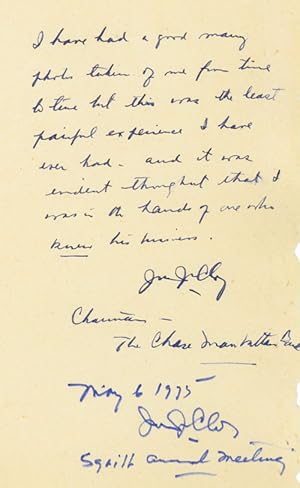 I have had a good many
photos taken of me from time
to time but this was the least
painful experience I have
ever had - and it was
evident throughout that I
was in the hands of one who
knew his business.
Jno J McCloy
Chairman -
The Chase Manhattan
May 6 1975
Jno J McCloy
Squibb annual meeting